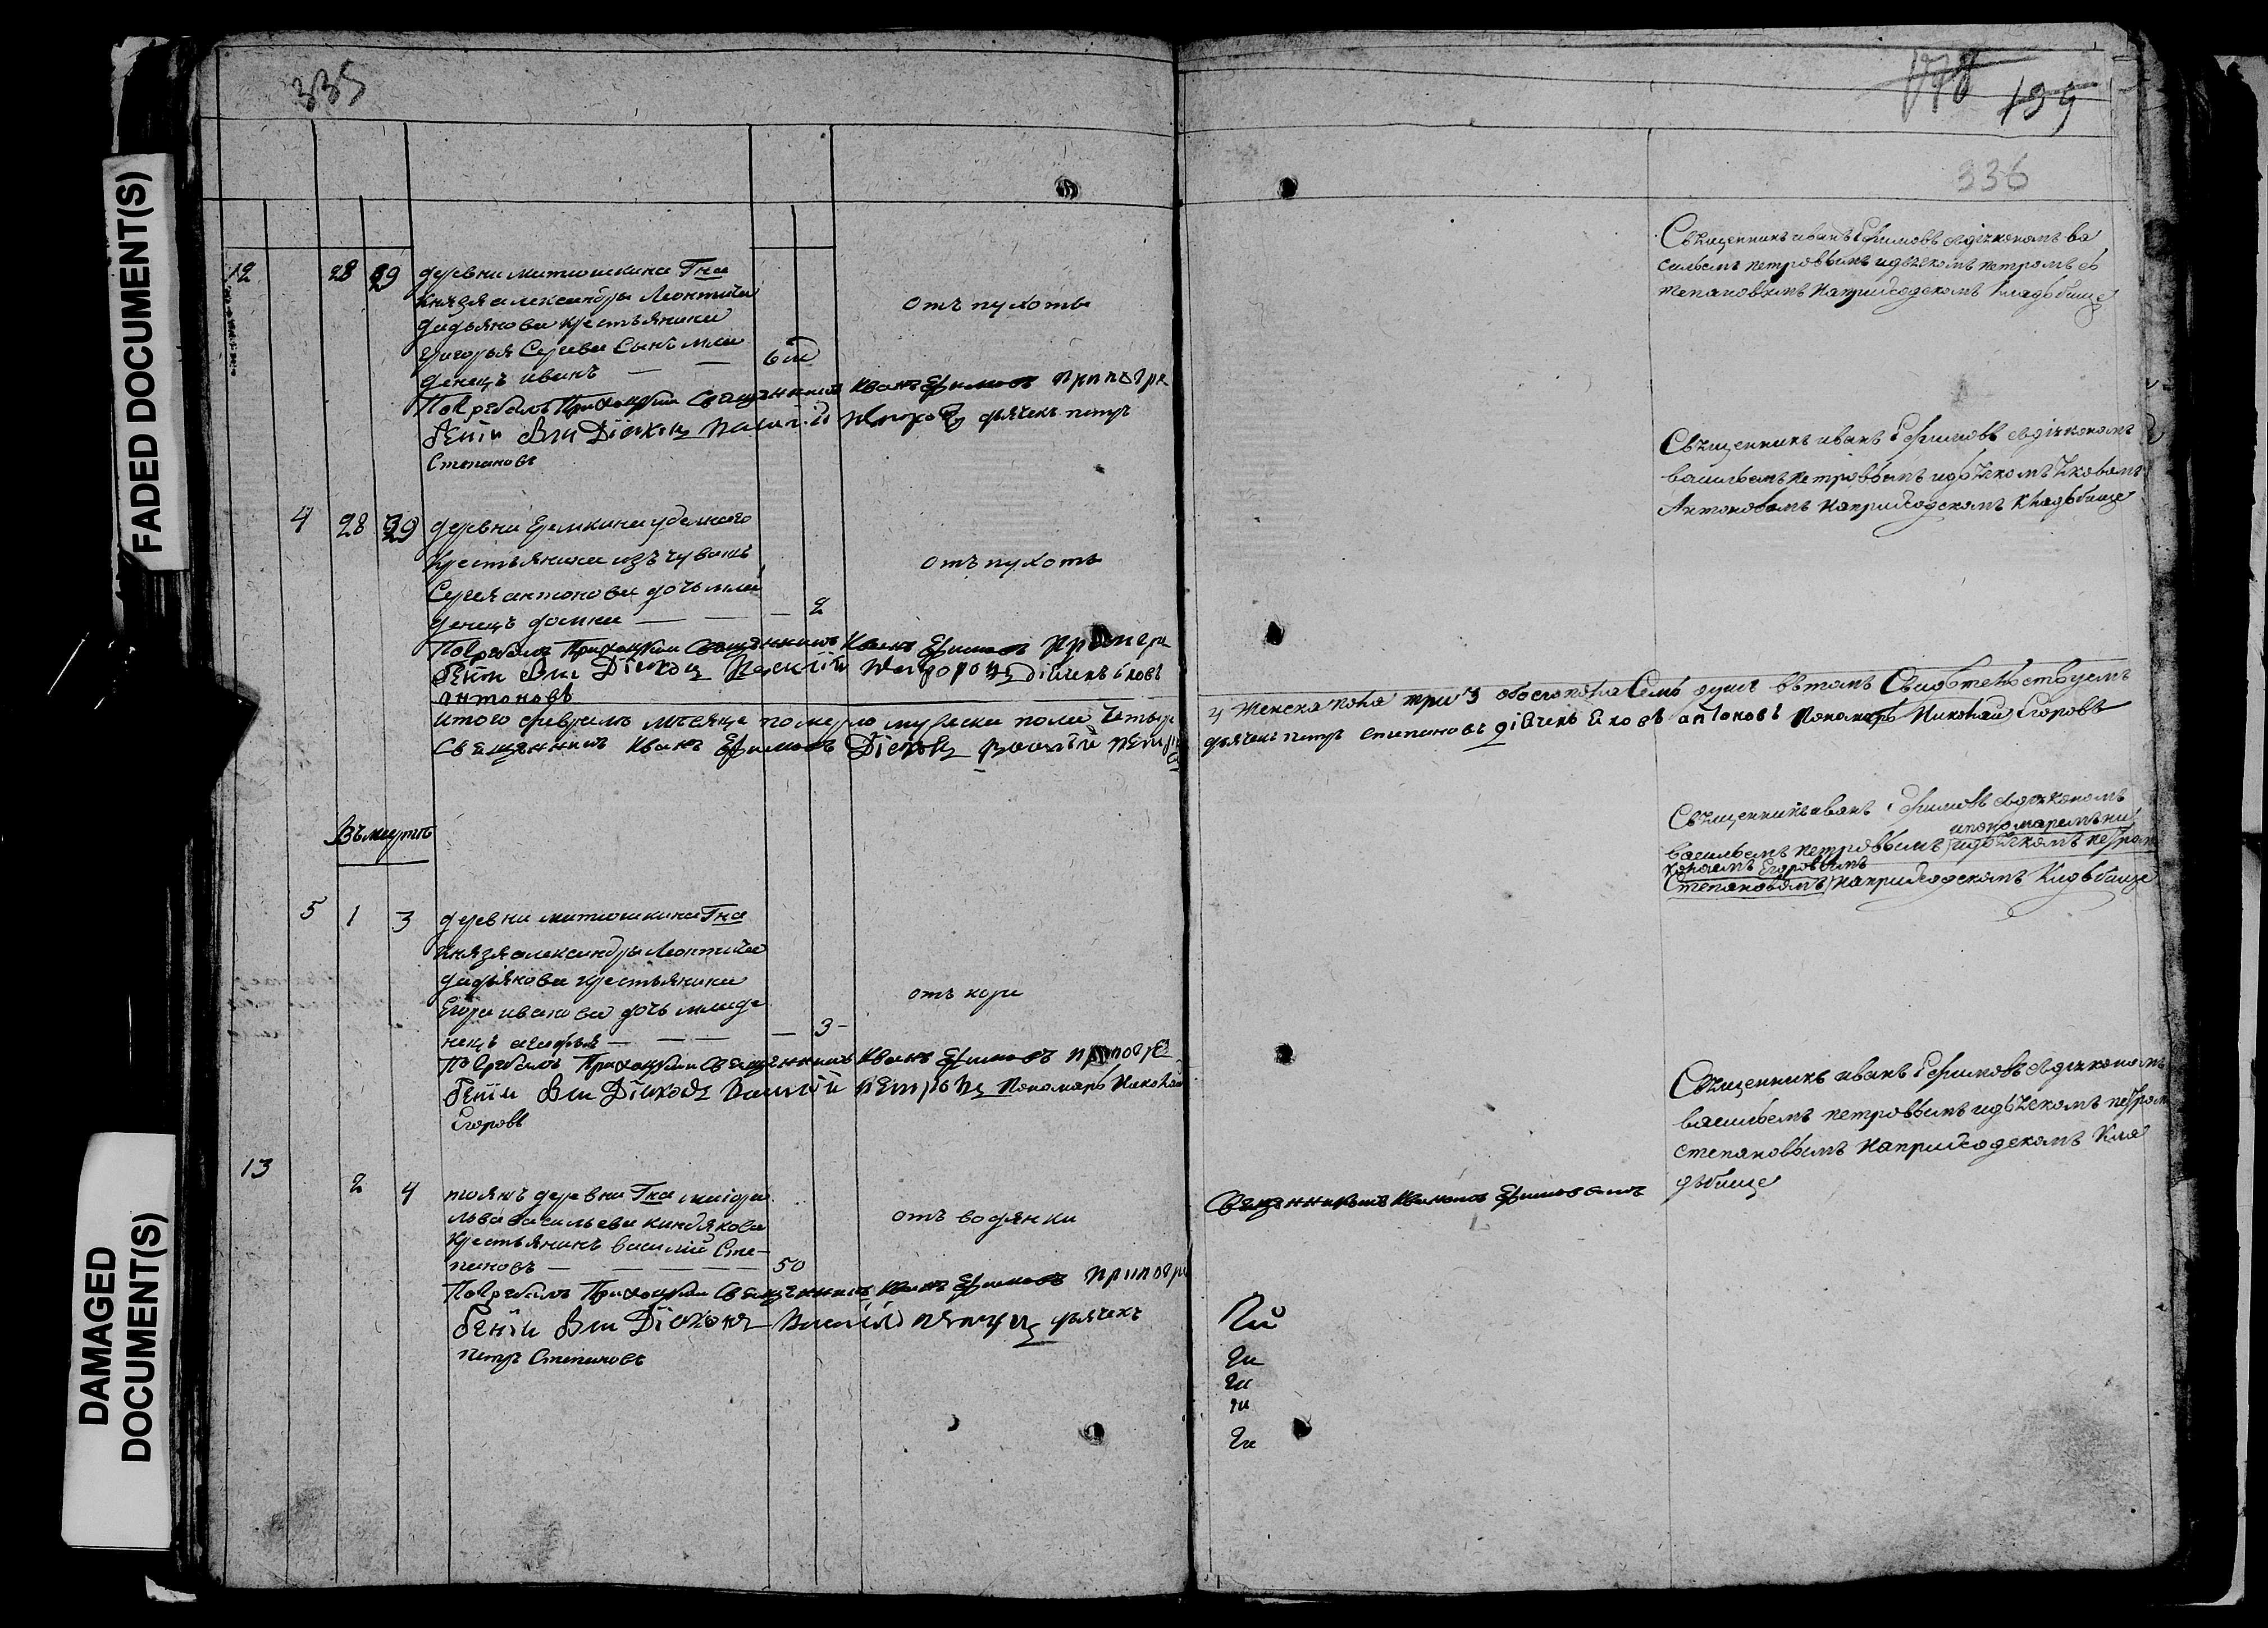 FADED DOCUMENT(S)
DAMAGED
DOCUMENT(S)
335
12 28 29 деревни митюшкина Гна
Князя александра Леонтича
дадьянова крестьянина
Григорья Сергева Сынъ мла
денецъ иванъ — — 6 м
отъ пухоты
Погребалъ Приходский Священникъ Иванъ Ефимовъ При погре
бении были Дiаконъ Василий Петровъ дьячекъ петръ
Степановъ
4 28 29 деревни Еремкина уделнаго
Крестьянина изъ чувашъ
Сергея антонова дочь мла
денецъ домна — — — 2
отъ пухоты
Погребалъ Приходский Священникъ Иванъ Ефимовъ При погре
бении были Дiаконъ Василий Петровъ дiячекъ яковъ
антоновъ
итого феврале месяце померло мужеска пола четыре
Священникъ Иванъ Ефимовъ Дiаконъ Василий Петровъ
Въ марте
5 1 3 деревни митюшкина Гна
Князя александра Леонтича
дадьянова крестьянина
Егора иванова дочь младе
нецъ агафья — — — — 3 —
отъ кори
Погребалъ Приходский Священникъ Иванъ Ефимовъ При погре
бении были Дiаконъ Василий Петровъ Пономарь Николай
Егоровъ
13 2 4 деревни Гна маiора
льва васильева киндякова
Крестьянинъ василий Сте-
пановъ — — — — — 50
отъ водянки
Погребалъ Приходский Священникъ Иванъ Ефимовъ При погре
бении были Дiаконъ Василий Петровъ дьячекъ
петръ Степановъ
178 139
336
Священникъ иванъ Ефимовъ сдiякономъ ва
сильемъ петровымъ идьячкомъ петромъ с
тепановымъ наприходскомъ кладбище
Священникъ иванъ Ефимовъ сдiякономъ
васильемъ петровымъ идьячкомъ яковомъ
Антоновымъ наприходскомъ кладбище
4 женска пола три 3 обоего пола Семь душъ вътомъ Свидетельствуемъ
дьячекъ петръ степановъ дiячекъ яковъ антоновъ Пономарь Николай Егоровъ
Священникъ иванъ Ефимовъ сдiякономъ
ипономаремъ ни
васильемъ петровымъ идьячкомъ петромъ
колаемъ Егоровымъ
Степановымъ наприходскомъ кладбище
Священникъ иванъ Ефимовъ сдiякономъ
васильемъ петровымъ идьячкомъ петромъ
степановымъ наприходскомъ кла
дбище
Священникомъ Иваномъ Ефимовымъ